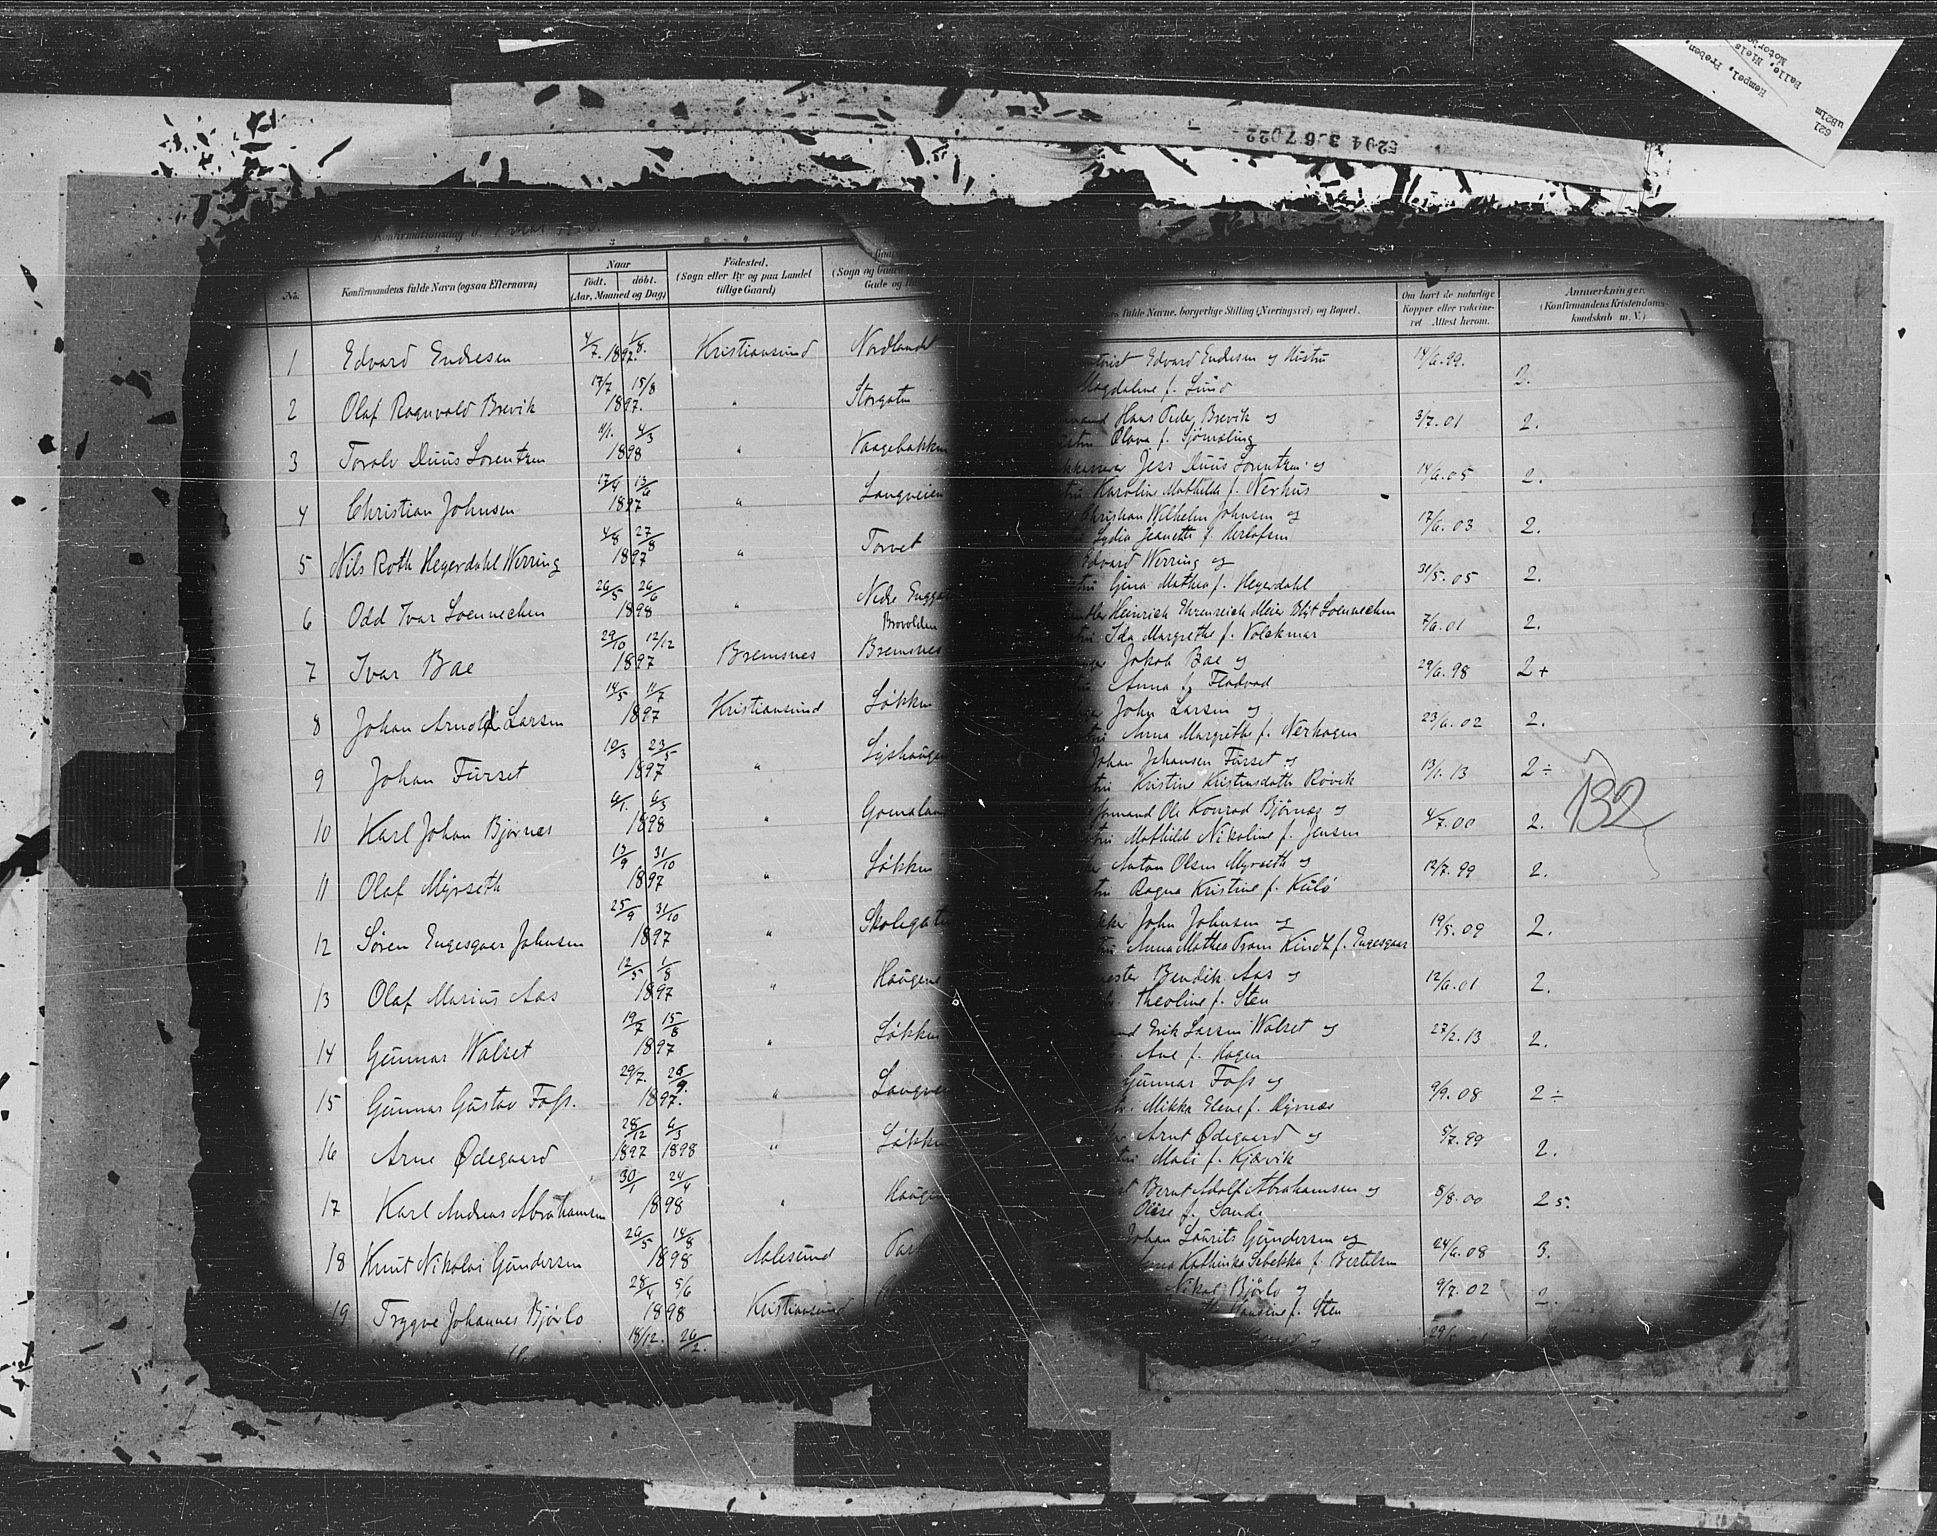 Konfirmationsdag d.
No.
Konfirmandens fulde Navn (ogsaa Efternavn)
Naar
født. døbt.
(Aar, Maaned og Dag)
Fødested.
(Sogn eller By og paa Landet
tillige Gaard)
(Sogn og Gaard
Gade og
fulde Navne, borgerlige Stilling (Næringsvei) og Bopæl.
Om havt de naturlige
Kopper eller vakcine-
ret Attest herom.
Anmærkninger.
(Konfirmandens Kristendoms-
kundskab m. V.)
1 Edvard Endresen 4/7. 1/8. 1897. Kristiansund Nordlandet
Edvard Endresen og Hustru 14/6. 99.
Magdaline f. Lund 2.
2 Olaf Ragnvald Brevik 17/7 15/8 1897. " Storgaten
Hans Peder Brevik og 3/7. 01 2.
Olava f. Sjømæling
3 Torolv Duus Lorentzen 11/1. 4/3 1898 " Vaagebakken
Jess Duus Lorentzen og 14/6. 05 2.
Karoline Mathilde f. Nerhus
4 Christian Johnsen 17/4 13/6 1897 " Langveien
Christian Wilhelm Johnsen og 17/6. 03 2.
Lydia Jeanette f. Herlofsen
5 Nils Roth Hegerdahl Werring 4/8 27/8 1897 " Torvet
Edvard Werring og 31/5. 05 2.
Gina Mathea f. Hegerdahl
6 Odd Ivar Loennechen 26/5 26/6 1898 " Nedre Enggate
Brovolden
Heinrich Ehrenreich Meier Blyt Loennechen 7/6. 01 2.
Ida Margrethe f. Volckmar
7 Ivar Bae 29/10 12/12 1897 Bremsnes Bremsnes
Jakob Bae og 29/6. 98 2+
Anna f. Flatvad
8 Johan Arnold Larsen 14/5 11/7 1897 Kristiansund Løkken
John Larsen og 23/6. 02 2.
Anna Margrethe f. Nerhagen
9 Johan Furset 10/3 23/5 1897 "
Johan Johansen Furset og 13/1. 13 2÷
Kristine Kristensdatter Røvik
132
10 Karl Johan Bjørnes 6/1. 6/3 1898 " Gomalandet
Formand Ole Konrad Bjørnes og 4/7. 00 2.
Mathilde Nikoline f. Jensen
11 Olaf Myrseth 13/9 31/10 1897 " Løkken
Anton Olsen Myrseth og 12/7. 99 2.
Ragna Kristine f. Kulø
12 Søren Engesgaar Johnsen 25/9 31/10 1897 " Skolegaten
John Johnsen og 19/5. 09 2.
Anna Mathea Tram Kindt f. Engesgaar
13 Olaf Marius Aas 12/5. 1/8 1897 " Haugene
Bendik Aas og 12/6. 01 2.
Theoline f. Sten
14 Gunnar Walset 19/7 15/8 1897 " Løkken
Erik Larsen Walset og 27/2. 13 2.
Ane f. Hagen
15 Gunnar Gustav Foss. 29/7. 26/9. 1897. " Langveien
Gunnar Foss og 9/9. 08 2÷
Mikka Elene f. Dyrnæs
16 Arne Ødegaard 28/12 6/3 1897 1898 " Løkken
Arnt Ødegaard og 5/7. 99 2.
Mali f. Kjørvik
17 Karl Andreas Abrahamsen 30/1 24/4 1898 " Haugene
Bernt Adolf Abrahamsen og 8/8. 00 2 5.
f. Sande
18 Knut Nikolai Gundersen 26/5 14/8 1898 Aalesund
Johan Laurits Gundersen og 24/6. 08 3.
Kathinka Rebekka f. Bertelsen
19 Trygve Johannes Bjørlo 28/4 5/6 1898 Kristiansund
Nikol. Bjørlo og 9/7. 02 2.
Hansine f. Sten
18/12. 26/2.
5204 3 67022
Hempel, Preben.
Balle, Niels
Motorb
621